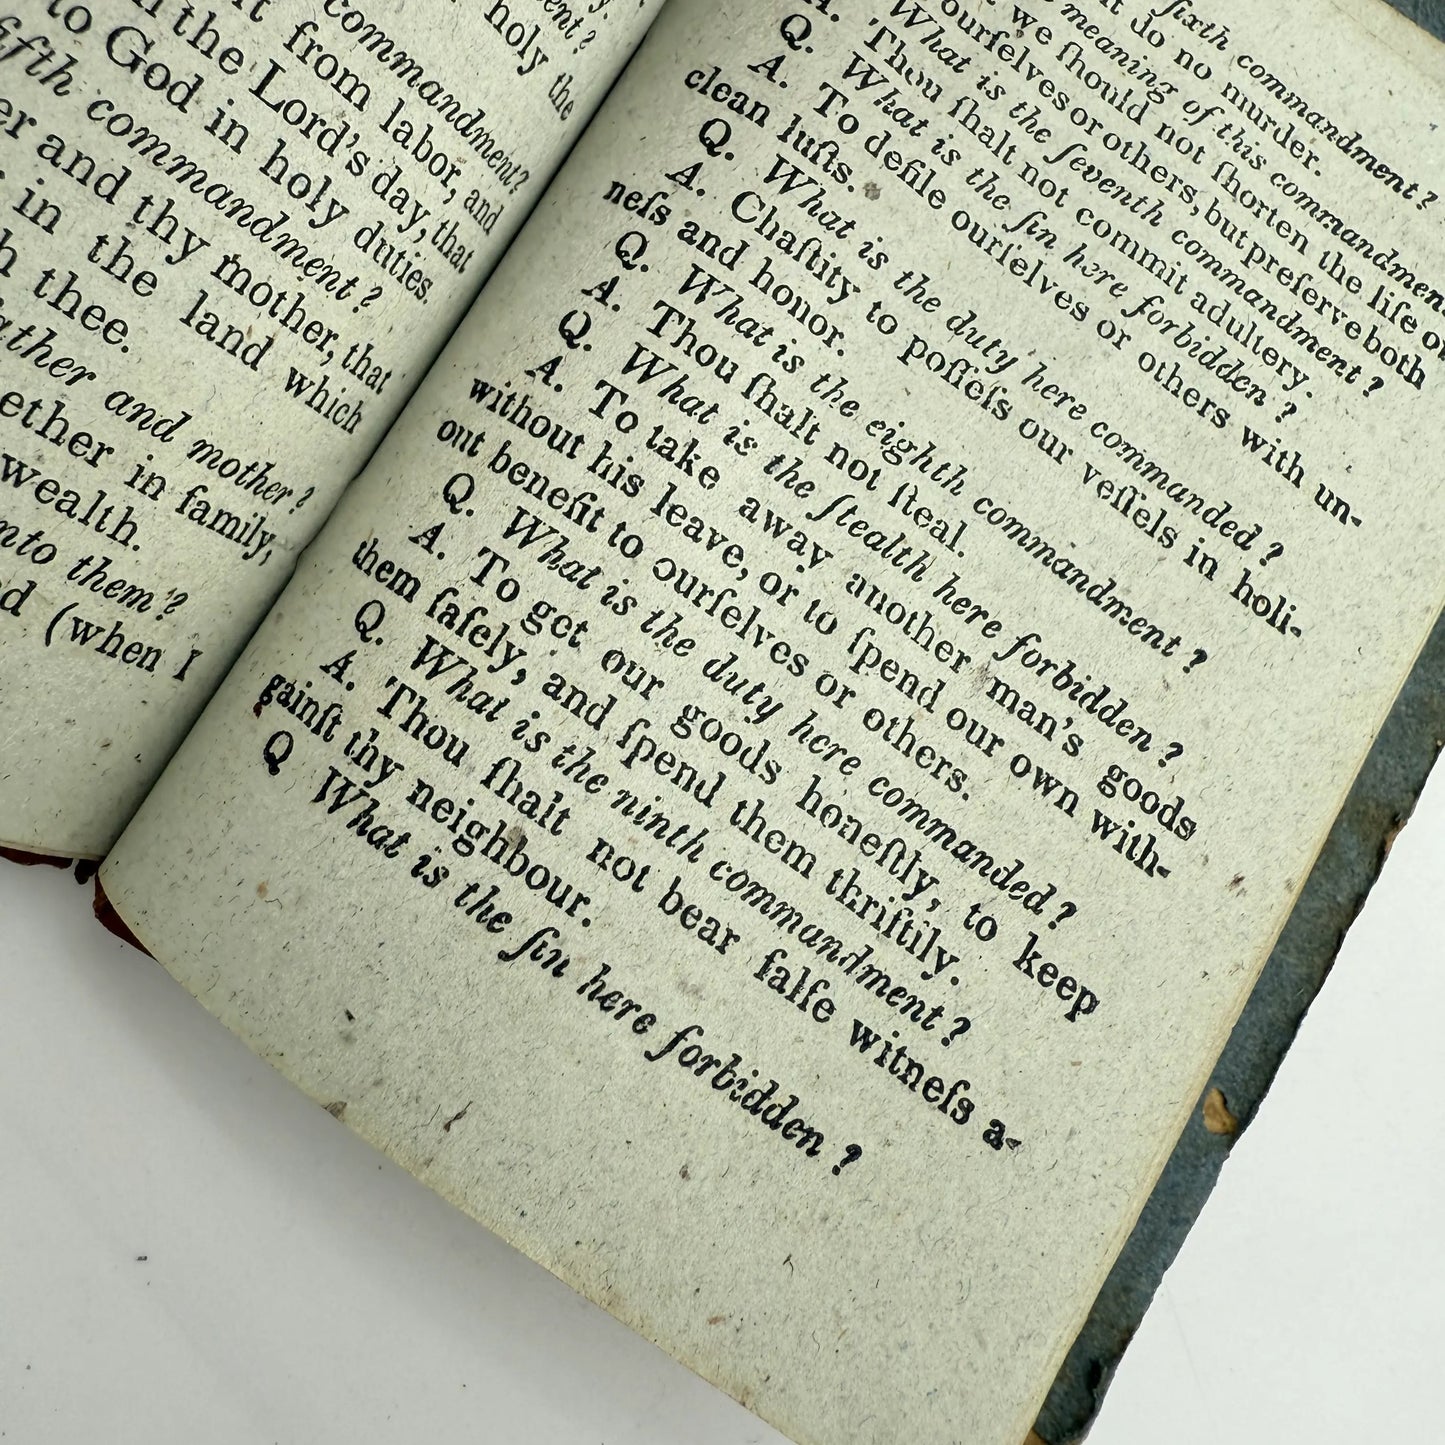 holy the
commandment?
from labor, and
in the Lord's day, that
to God in holy duties.
fifth commandment?
er and thy mother, that
in the land which
thee.
father and mother?
ether in family,
wealth.
unto them?
(when I
ſixth commandment?
do no murder.
meaning of this commandment
we ſhould not ſhorten the life
ourſelves or others, but preſerve both
Q. What is the ſeventh commandment?
A. Thou ſhalt not commit adultery.
Q. What is the ſin here forbidden?
A. To defile ourſelves or others with un-
clean luſts.
Q. What is the duty here commanded?
A. Chaſtity to poſſeſs our veſſels in holi-
neſs and honor.
Q. What is the eighth commandment?
A. Thou ſhalt not ſteal.
Q. What is the ſtealth here forbidden?
A. To take away another man's goods
without his leave, or to ſpend our own with-
out benefit to ourſelves or others.
Q. What is the duty here commanded?
A. To get our goods honeſtly, to keep
them ſafely, and ſpend them thriftily.
Q. What is the ninth commandment?
A. Thou ſhalt not bear falſe witneſs a-
gainſt thy neighbour.
Q What is the ſin here forbidden?